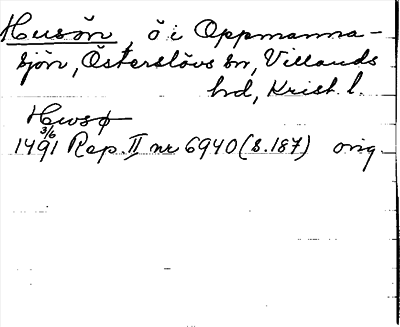 Husön, ö i Oppmanna-
sjön, Österslövs sn, Villands
hd, Krist. l.
Hwsø
3/6
1491 Rep. II nr 6940 (s. 187) orig.